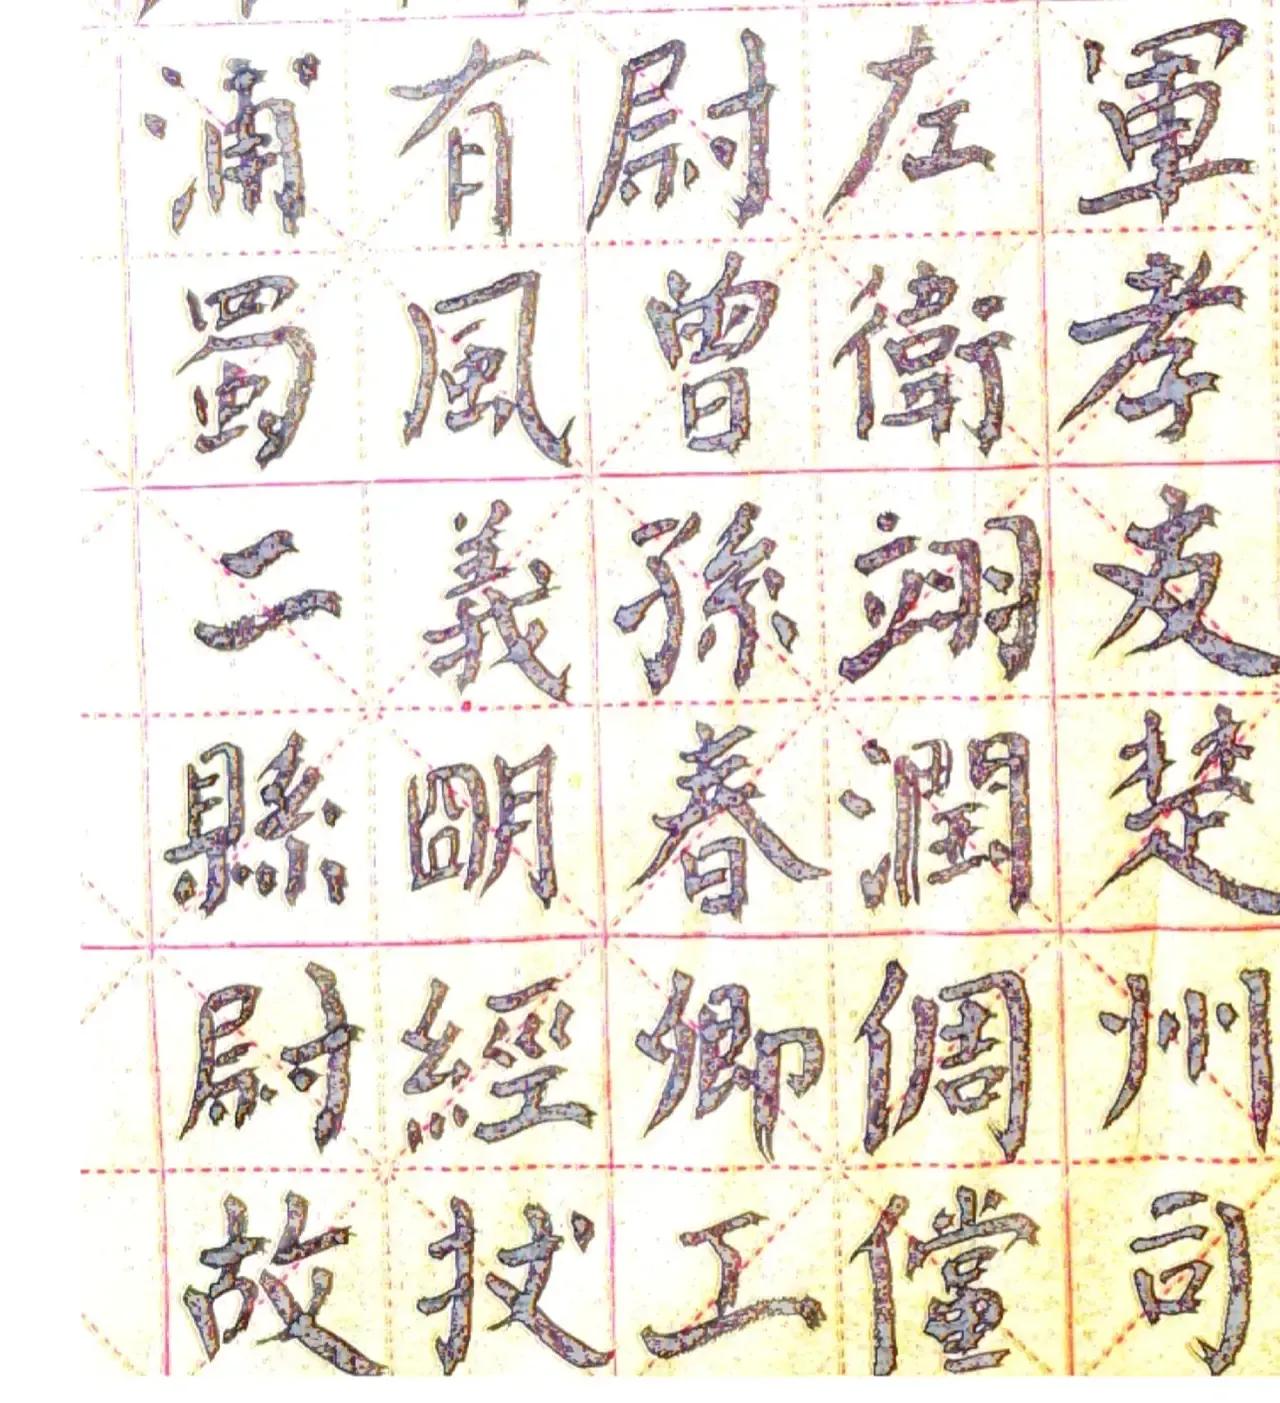 軍孝友楚州司
左衛翊潤倜儻
尉曾孫春卿工
有風義朙經拔
浦蜀二縣尉故